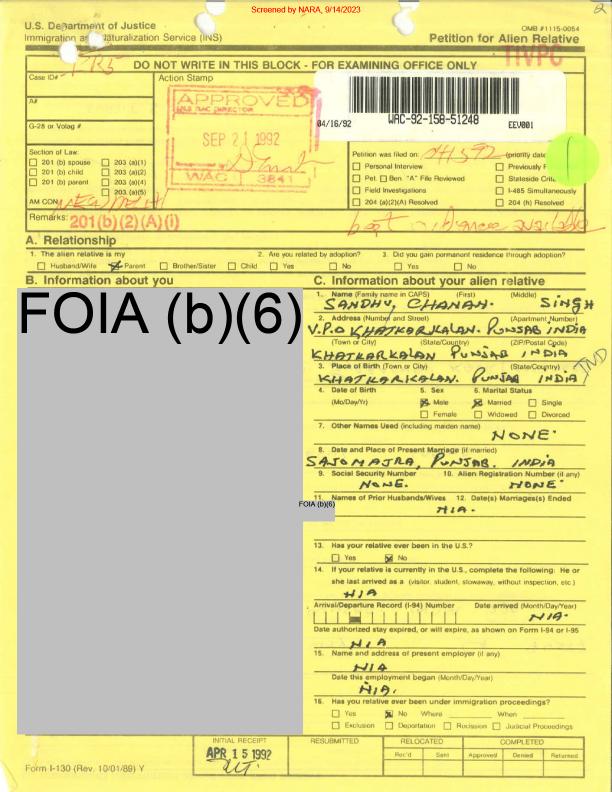 Screened by NARA, 9/14/2023
2
U.S. Department of Justice
Immigration and Naturalization Service (INS)
OMB #1115-0054
Petition for Alien Relative
TIVPC
DO NOT WRITE IN THIS BLOCK - FOR EXAMINING OFFICE ONLY
Case ID#
Action Stamp
A#
G-28 or Volag #
APPROVED
SEP 21 1992
WAC 3841
04/16/92 WAC-92-158-51248 EEV001
Section of Law:
201 (b) spouse 203 (a)(1)
201 (b) child 203 (a)(2)
201 (b) parent 203 (a)(4)
203 (a)(5)
AM CON:
Petition was filed on: (priority date
Personal Interview Previously F
Pet. Ben. "A" File Reviewed Stateside Crite
Field Investigations I-485 Simultaneously
204 (a)(2)(A) Resolved 204 (h) Resolved
Remarks: 201(b)(2)(A)(i)
best evidence available
A. Relationship
1. The alien relative is my 2. Are you related by adoption? 3. Did you gain permanent residence through adoption?
Husband/Wife Parent Brother/Sister Child Yes No Yes No
B. Information about you
FOIA (b)(6)
C. Information about your alien relative
1. Name (Family name in CAPS) (First) (Middle)
SANDHU, CHANAN. SINGH
2. Address (Number and Street) (Apartment Number)
V.P.O KHATKARKALAN. PUNJAB INDIA
(Town or City) (State/Country) (ZIP/Postal Code)
KHATKARKALAN PUNJAB INDIA
3. Place of Birth (Town or City) (State/Country)
KHATKARKALAN. PUNJAB INDIA
IND
4. Date of Birth 5. Sex 6. Marital Status
(Mo/Day/Yr) Male Married Single
Female Widowed Divorced
7. Other Names Used (including maiden name)
NONE
8. Date and Place of Present Marriage (if married)
SAJOMAJRA, PUNJAB. INDIA
9. Social Security Number 10. Alien Registration Number (if any)
NONE. NONE
11. Names of Prior Husbands/Wives 12. Date(s) Marriages(s) Ended
FOIA (b)(6)
N/A.
13. Has your relative ever been in the U.S.?
Yes No
14. If your relative is currently in the U.S., complete the following: He or
she last arrived as a (visitor, student, stowaway, without inspection, etc.)
N/A
Arrival/Departure Record (I-94) Number Date arrived (Month/Day/Year)
N/A.
Date authorized stay expired, or will expire, as shown on Form I-94 or I-95
N/A
15. Name and address of present employer (if any)
N/A
Date this employment began (Month/Day/Year)
N/A.
16. Has your relative ever been under immigration proceedings?
Yes No Where When
Exclusion Deportation Recission Judicial Proceedings
INITIAL RECEIPT RESUBMITTED RELOCATED COMPLETED
Rec'd Sent Approved Denied Returned
APR 15 1992
Form I-130 (Rev. 10/01/89) Y